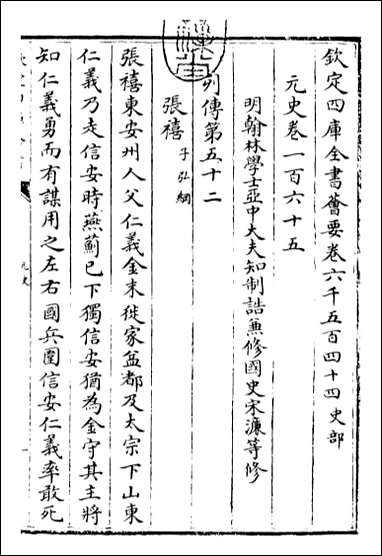 欽定四庫全書薈要卷六千五百四十四史部
元史卷一百六十五
明翰林學士亞中大夫知制誥兼修國史宋濂等修
列傳第五十二
張禧 子弘綱
張禧東安州人父仁義金末徙家益都及太宗下山東
仁義乃走信安時燕薊已下獨信安猶為金守其主將
知仁義勇而有謀用之左右國兵圍信安仁義率敢死
元史